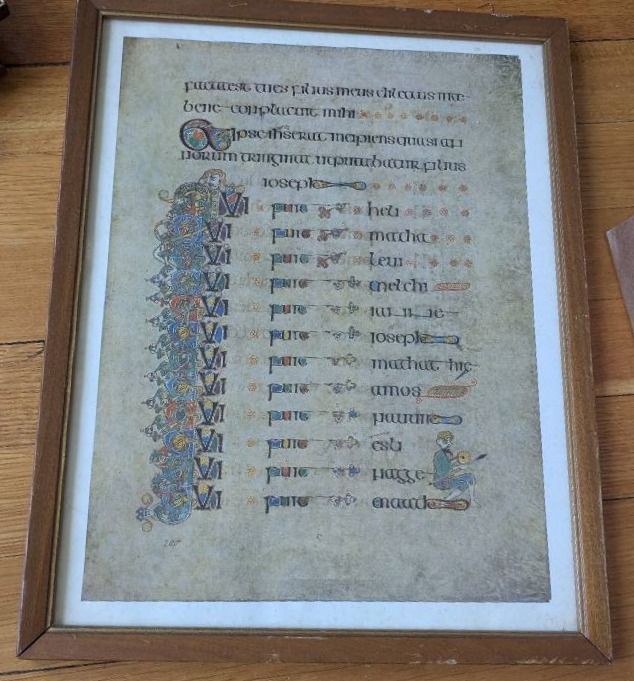 bene conplacuit mihi
Et ipse ihs erat incipiens quasi an
norum triginta ut putabatur filius
ioseph
QUI fuit heli
QUI fuit matha
QUI fuit levi
QUI fuit melchi
QUI fuit
QUI fuit ioseph
QUI fuit mathathie
QUI fuit amos
QUI fuit nauum
QUI fuit esli
QUI fuit nagge
QUI fuit maath